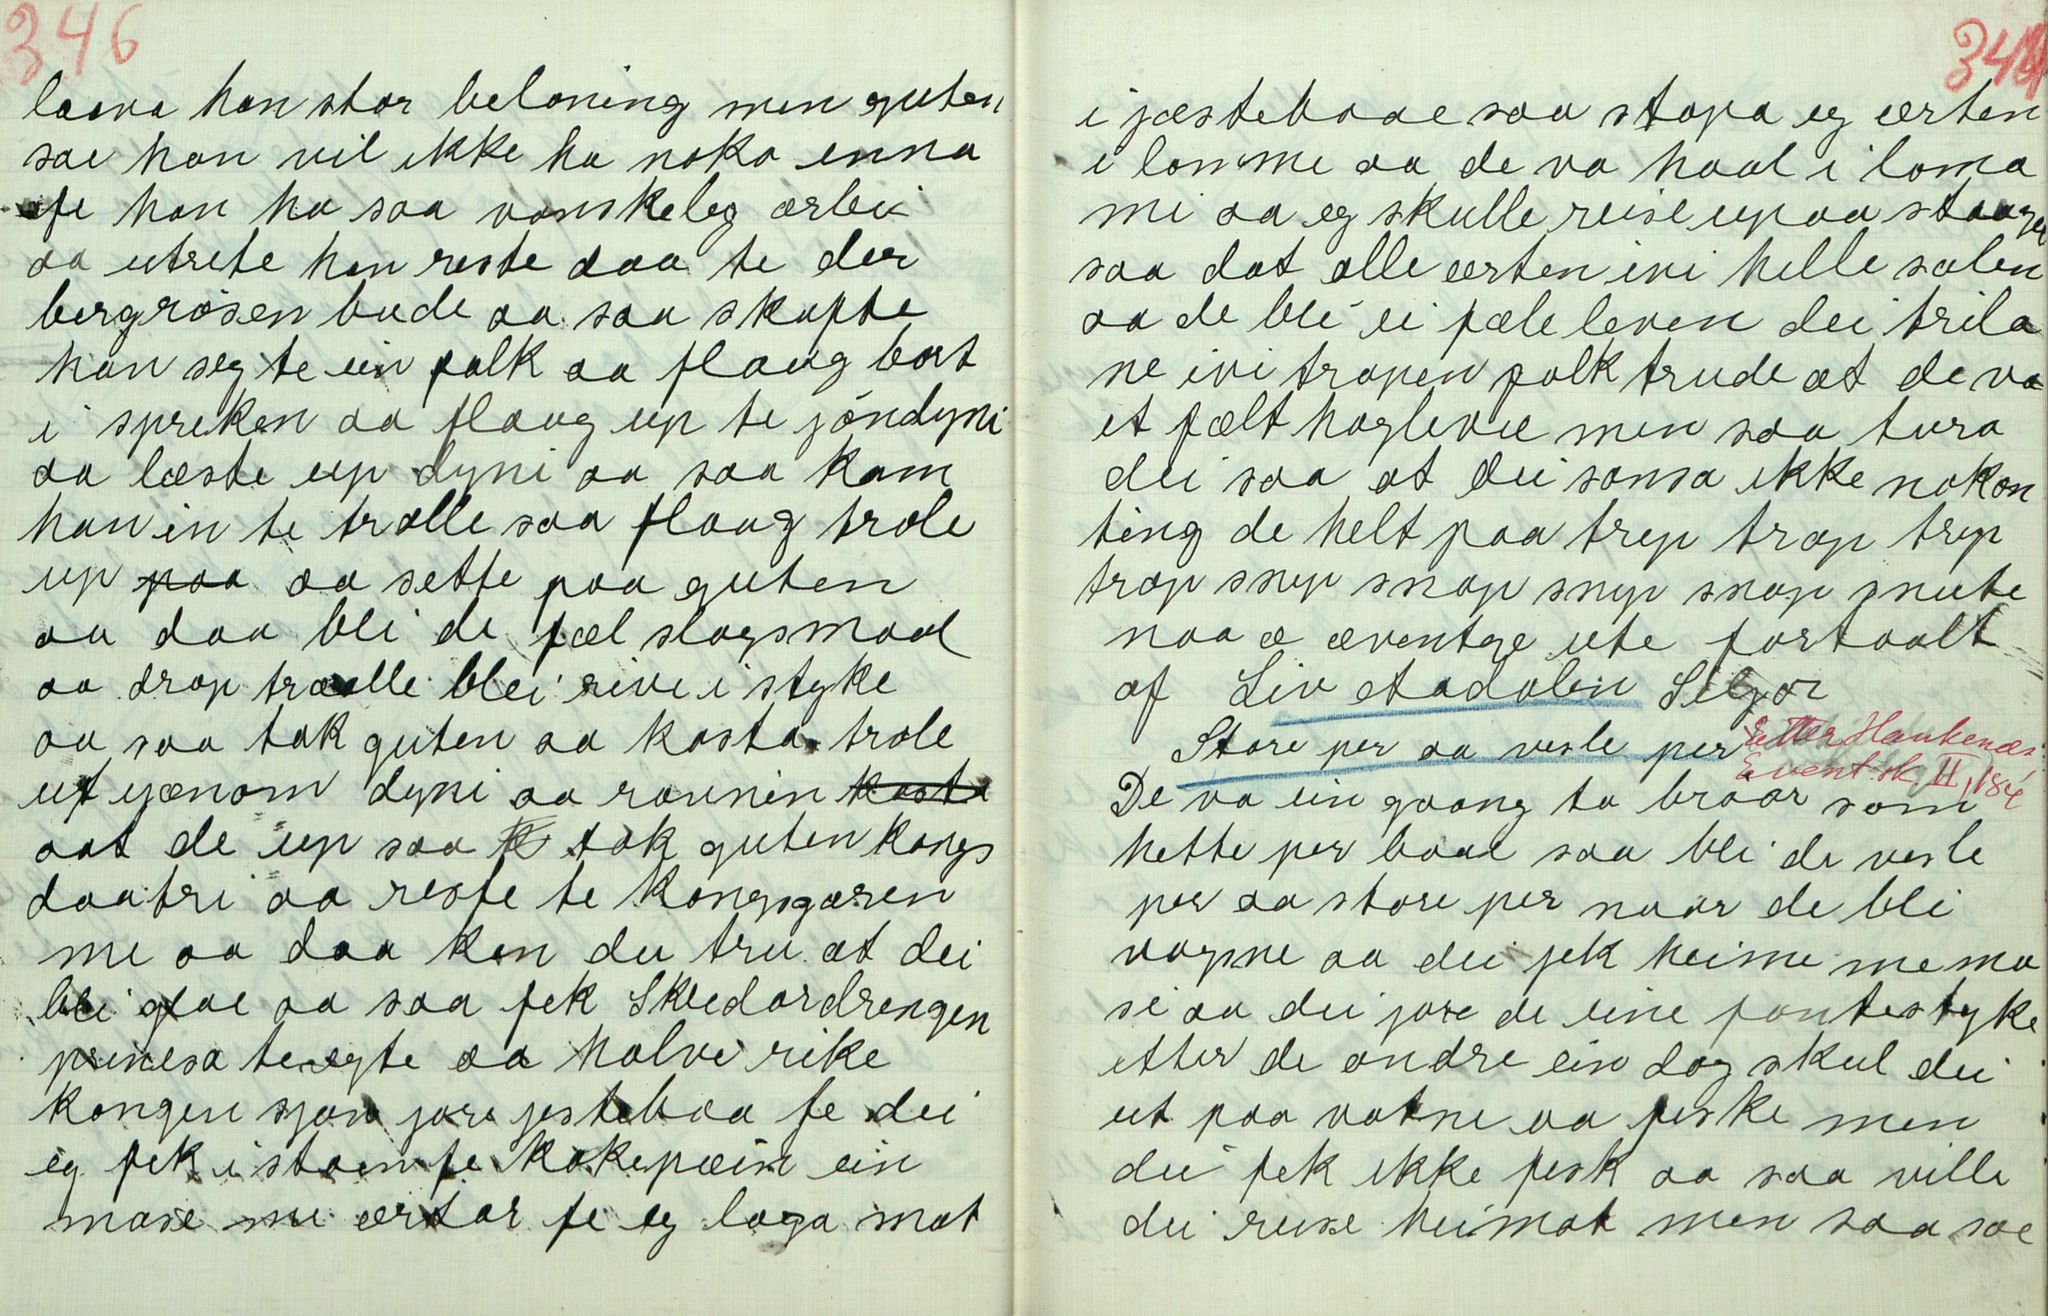 346
laava han stor beloning men guten
sae han vil ikke ha noko enna
fe han ha saa vanskeleg arbei
aa utrete han reste daa te der
bergrosen bude aa saa skapte
han seg te ein falk aa flaug bort
i spreken aa flaug up te jöndyni
aa læste up dyni aa saa kam
han in te trolle saa flaug trole
up paa aa sette paa guten
aa daa blei de fæl slagsmaal
aa drap trælle blei rive i styke
aa saa tok guten aa kasta trole
ut gjænom dyni aa raunin kasta
aat de up saa tok guten kongs
daatri aa reste te kongsgaren
me aa daa kan du tru at dei
blei glae aa saa fek Skredardrengen
prinsesa te ægte aa halve rike
kongen sjøn jore jesteboa fe dei
eg fek i stoen fe kokepæin ein
mase me ærtar fe eg laga mat
344
i jæsteboae saa stapa eg ærten
i lomme aa de va haal i loma
mi aa eg skulle reise upaa staazen
saa dat alle ærten ivi helle salen
aa de blei ei fæle leven dei trila
ne ivi trapen folk trude at de va
et fælt haglevæ men saa tura
dei saa at dei sansa ikke nokon
ting de helt paa trip trap trip
trap snip snap snip snap snute
naa æ æventye ute fortaalt
af Liv etadalen Seljor
Store per aa vesle per
Etter Haukenæs
Event.sk II, 184
De va ein gaang to braar som
hette per baae saa blei de vesle
per aa store per naar de blei
vagsne aa dei jek heime me ma
si aa dei jore de eine fantestyke
etter de andre ein dag skul dei
ut paa vatne aa feske men
dei fek ikke fesk aa saa ville
dei reise heimat men saa sae